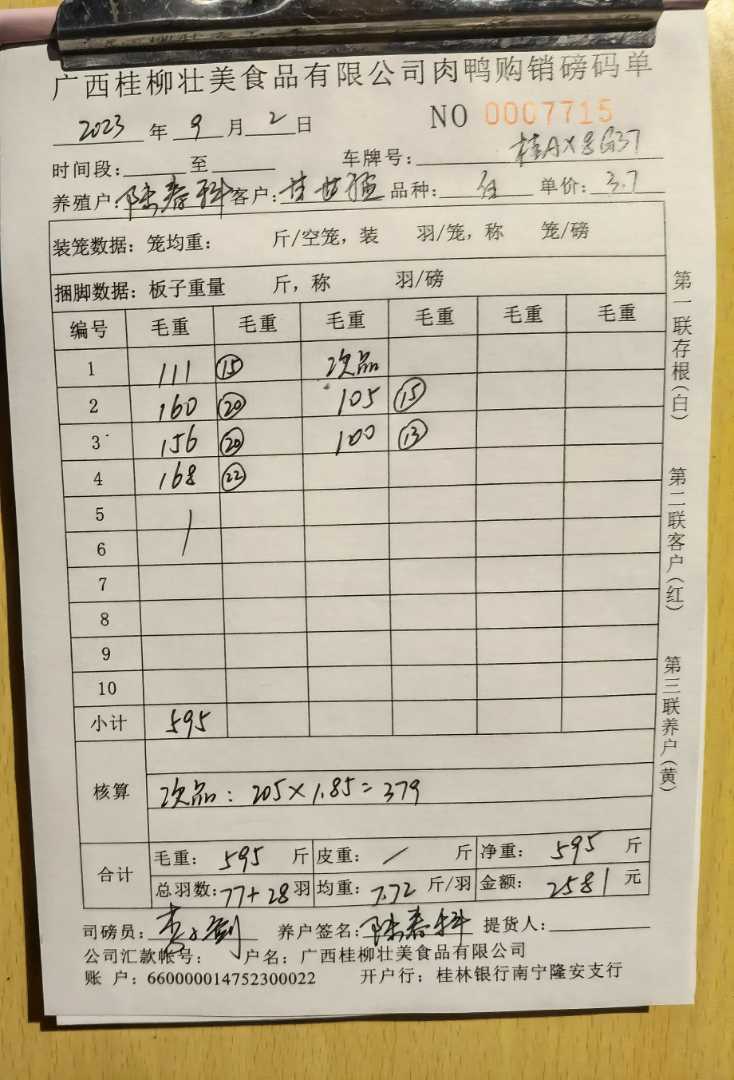 广西桂柳壮美食品有限公司肉鸭购销磅码单
2023 年 9 月 2 日 NO 0007715
时间段: 至 车牌号: 桂AX8G37
养殖户: 陈春科 客户: 品种: 白 单价: 3.7
装笼数据: 笼均重: 斤/空笼, 装 羽/笼, 称 笼/磅
捆脚数据: 板子重量 斤, 称 羽/磅
编号 毛重 毛重 毛重 毛重 毛重 毛重
1 111 15 次品
2 160 20 105 15
3 156 20 100 13
4 168 22
5
6
7
8
9
10
小计 595
核算
次品: 205×1.85=379
合计
毛重: 595 斤 皮重: / 斤 净重: 595 斤
总羽数: 77+28 羽 均重: 7.72 斤/羽 金额: 2581 元
司磅员: 养户签名: 陈春科 提货人:
公司汇款帐号: 户名: 广西桂柳壮美食品有限公司
账 户: 660000014752300022 开户行: 桂林银行南宁隆安支行
第一联存根(白)
第二联客户(红)
第三联养户(黄)